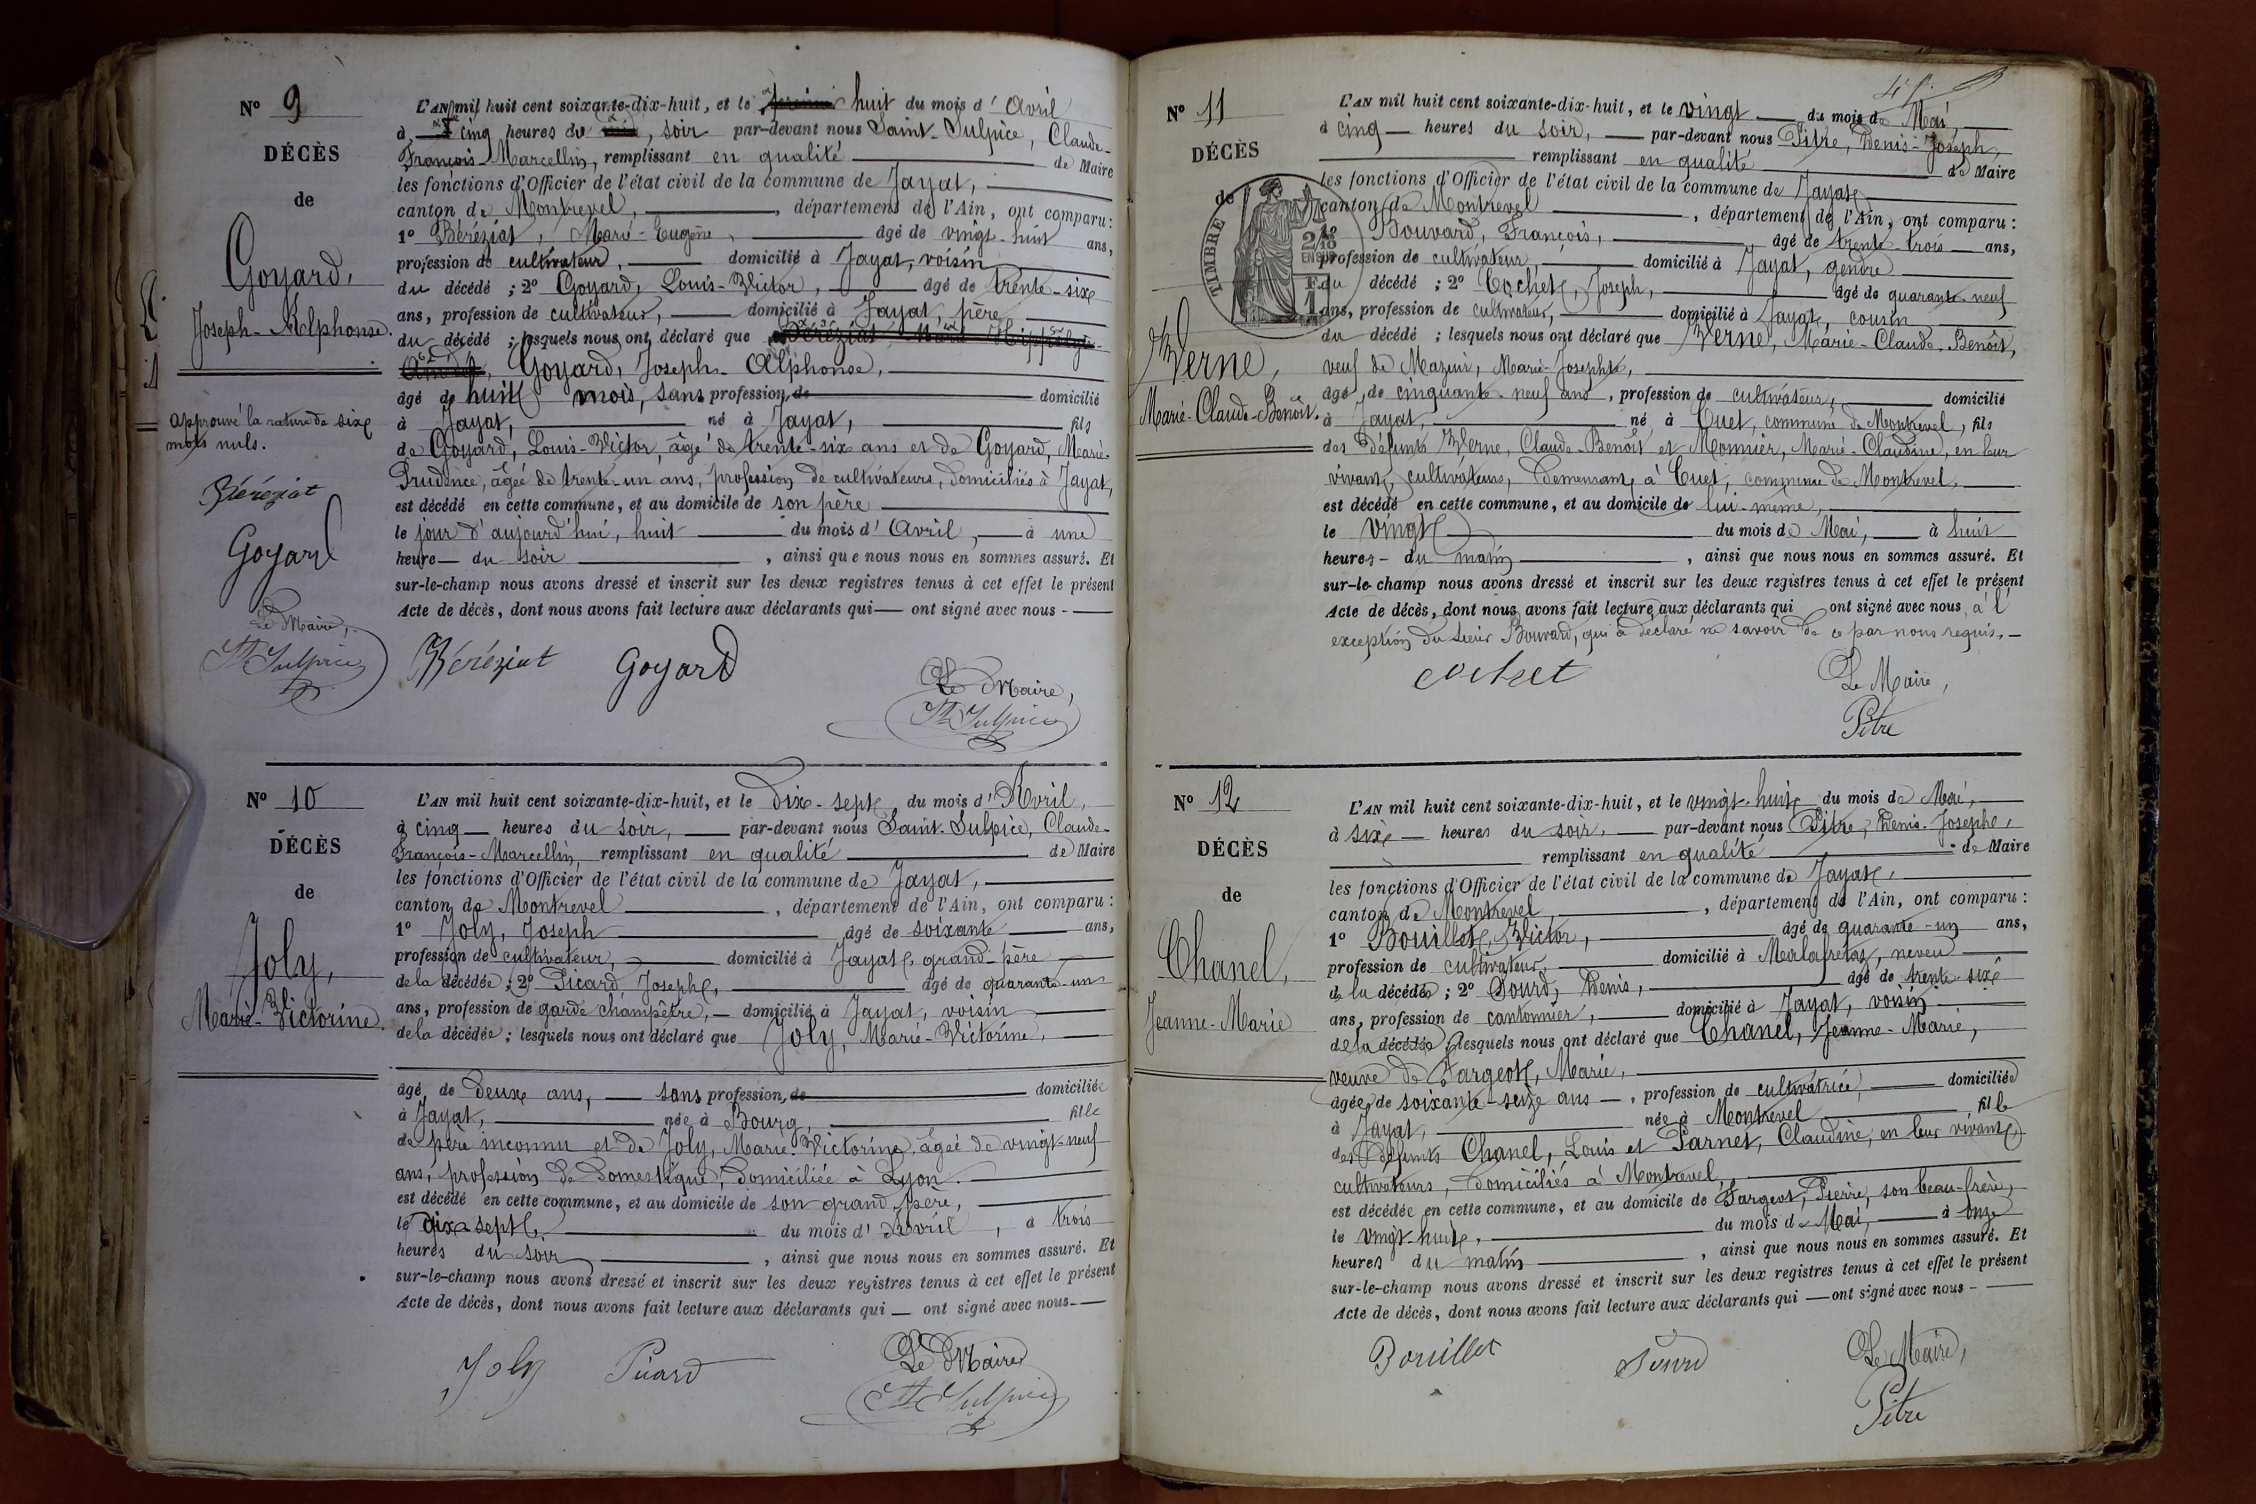 N° 9
DÉCÈS
de
Goyard,
Joseph-Alphonse.
approuvé la rature de six
mots nuls.
Béréziat
Goyard
Le Maire,
St Sulpice
L'AN mil huit cent soixante-dix-huit, et le huit du mois d'Avril
à cinq heures du soir par-devant nous Saint-Sulpice, Claude-
François-Marcellin, remplissant en qualité de Maire
les fonctions d'Officier de l'état civil de la commune de Jayat,
canton de Montrevel, département de l'Ain, ont comparu :
1° Béréziat, Marie-Eugène, agé de vingt-huit ans,
profession de cultivateur, domicilié à Jayat, voisin
du décédé ; 2° Goyard, Louis-Victor, agé de trente-six
ans, profession de cultivateur, domicilié à Jayat, père
du décédé ; lesquels nous ont déclaré que Béréziat Marie Hippolyte
Goyard, Joseph-Alphonse,
agé de huit mois, sans profession, de domicilié
à Jayat, né à Jayat, fils
de Goyard, Louis-Victor, âgé de trente-six ans et de Goyard, Marie-
Prudence, âgée de trente-un ans, profession de cultivateurs, domiciliés à Jayat,
est décédé en cette commune, et au domicile de son père
le jour d'aujourd'hui, huit du mois d'Avril, à une
heure du soir, ainsi que nous nous en sommes assuré. Et
sur-le-champ nous avons dressé et inscrit sur les deux registres tenus à cet effet le présent
Acte de décès, dont nous avons fait lecture aux déclarants qui — ont signé avec nous -
Béréziat Goyard
Le Maire,
St Sulpice
N° 10
DÉCÈS
de
Joly,
Marie-Victorine.
L'AN mil huit cent soixante-dix-huit, et le Dix-sept du mois d'Avril,
à cinq heures du soir, par-devant nous Saint-Sulpice, Claude-
François-Marcellin, remplissant en qualité de Maire
les fonctions d'Officier de l'état civil de la commune de Jayat,
canton de Montrevel, département de l'Ain, ont comparu :
1° Joly, Joseph agé de soixante ans,
profession de cultivateur, domicilié à Jayat, grand-père
de la décédée ; 2° Picard, Joseph, agé de quarante-un
ans, profession de garde champêtre, domicilié à Jayat, voisin
de la décédée ; lesquels nous ont déclaré que Joly, Marie-Victorine,
agé de deux ans, sans profession, de domiciliée
à Jayat, née à Bourg, fille
de père inconnu et de Joly, Marie-Victorine, âgée de vingt-neuf
ans, profession de domestique, domiciliée à Lyon.
est décédé en cette commune, et au domicile de son grand père,
le dix-sept, du mois d'Avril, à trois
heures du soir, ainsi que nous nous en sommes assuré. Et
sur-le-champ nous avons dressé et inscrit sur les deux registres tenus à cet effet le présent
Acte de décès, dont nous avons fait lecture aux déclarants qui — ont signé avec nous -
Joly Picard
Le Maire
St Sulpice
N° 11
DÉCÈS
de
TIMBRE
Verne,
Marie-Claude-Benoît.
L'AN mil huit cent soixante-dix-huit, et le vingt du mois de Mai,
à cinq heures du soir, par-devant nous Pitre, Denis-Joseph,
remplissant en qualité de Maire
les fonctions d'Officier de l'état civil de la commune de Jayat,
canton de Montrevel, département de l'Ain, ont comparu :
1° Bouvard, François, agé de trente-trois ans,
profession de cultivateur, domicilié à Jayat, gendre
du décédé ; 2° Cochet, Joseph, agé de quarante-neuf
ans, profession de cultivateur, domicilié à Jayat, cousin
du décédé ; lesquels nous ont déclaré que Verne, Marie-Claude-Benoît,
veuf de Mazuir, Marie-Josephte,
agé de cinquante-neuf ans, profession de cultivateur, domicilié
à Jayat, né à Cuet, commune de Montrevel, fils
des défunts Verne, Claude-Benoît et Monnier, Marie-Claudine, en leur
vivant, cultivateurs, demeurant à Cuet, commune de Montrevel,
est décédé en cette commune, et au domicile de lui-même,
le vingt du mois de Mai, à huit
heures du matin, ainsi que nous nous en sommes assuré. Et
sur-le-champ nous avons dressé et inscrit sur les deux registres tenus à cet effet le présent
Acte de décès, dont nous avons fait lecture aux déclarants qui ont signé avec nous, à l'
exception du sieur Bouvard, qui a déclaré ne savoir de ce par nous requis.
cochet
Le Maire,
Pitre
N° 12
DÉCÈS
de
Chanel,
Jeanne-Marie
L'AN mil huit cent soixante-dix-huit, et le vingt-huit du mois de Mai,
à six heures du soir, par-devant nous Pitre, Denis-Joseph,
remplissant en qualité de Maire
les fonctions d'Officier de l'état civil de la commune de Jayat,
canton de Montrevel, département de l'Ain, ont comparu :
1° Bouillet, Victor, agé de quarante-un ans,
profession de cultivateur, domicilié à Malafretaz, neveu
de la décédée ; 2° Sourd, Denis, agé de trente-six
ans, profession de cantonnier, domicilié à Jayat, voisin
de la décédée ; lesquels nous ont déclaré que Chanel, Jeanne-Marie,
veuve de Fargeot, Marie,
agée de soixante-seize ans, profession de cultivatrice, domiciliée
à Jayat, née à Montrevel fille
des défunts Chanel, Louis et Parnet, Claudine, en leur vivant
cultivateurs, domiciliés à Montrevel,
est décédée en cette commune, et au domicile de Fargeot, Pierre, son beau-frère,
le vingt-huit, du mois de Mai, à onze
heures du matin, ainsi que nous nous en sommes assuré. Et
sur-le-champ nous avons dressé et inscrit sur les deux registres tenus à cet effet le présent
Acte de décès, dont nous avons fait lecture aux déclarants qui — ont signé avec nous -
Bouillet Sourd
Le Maire,
Pitre